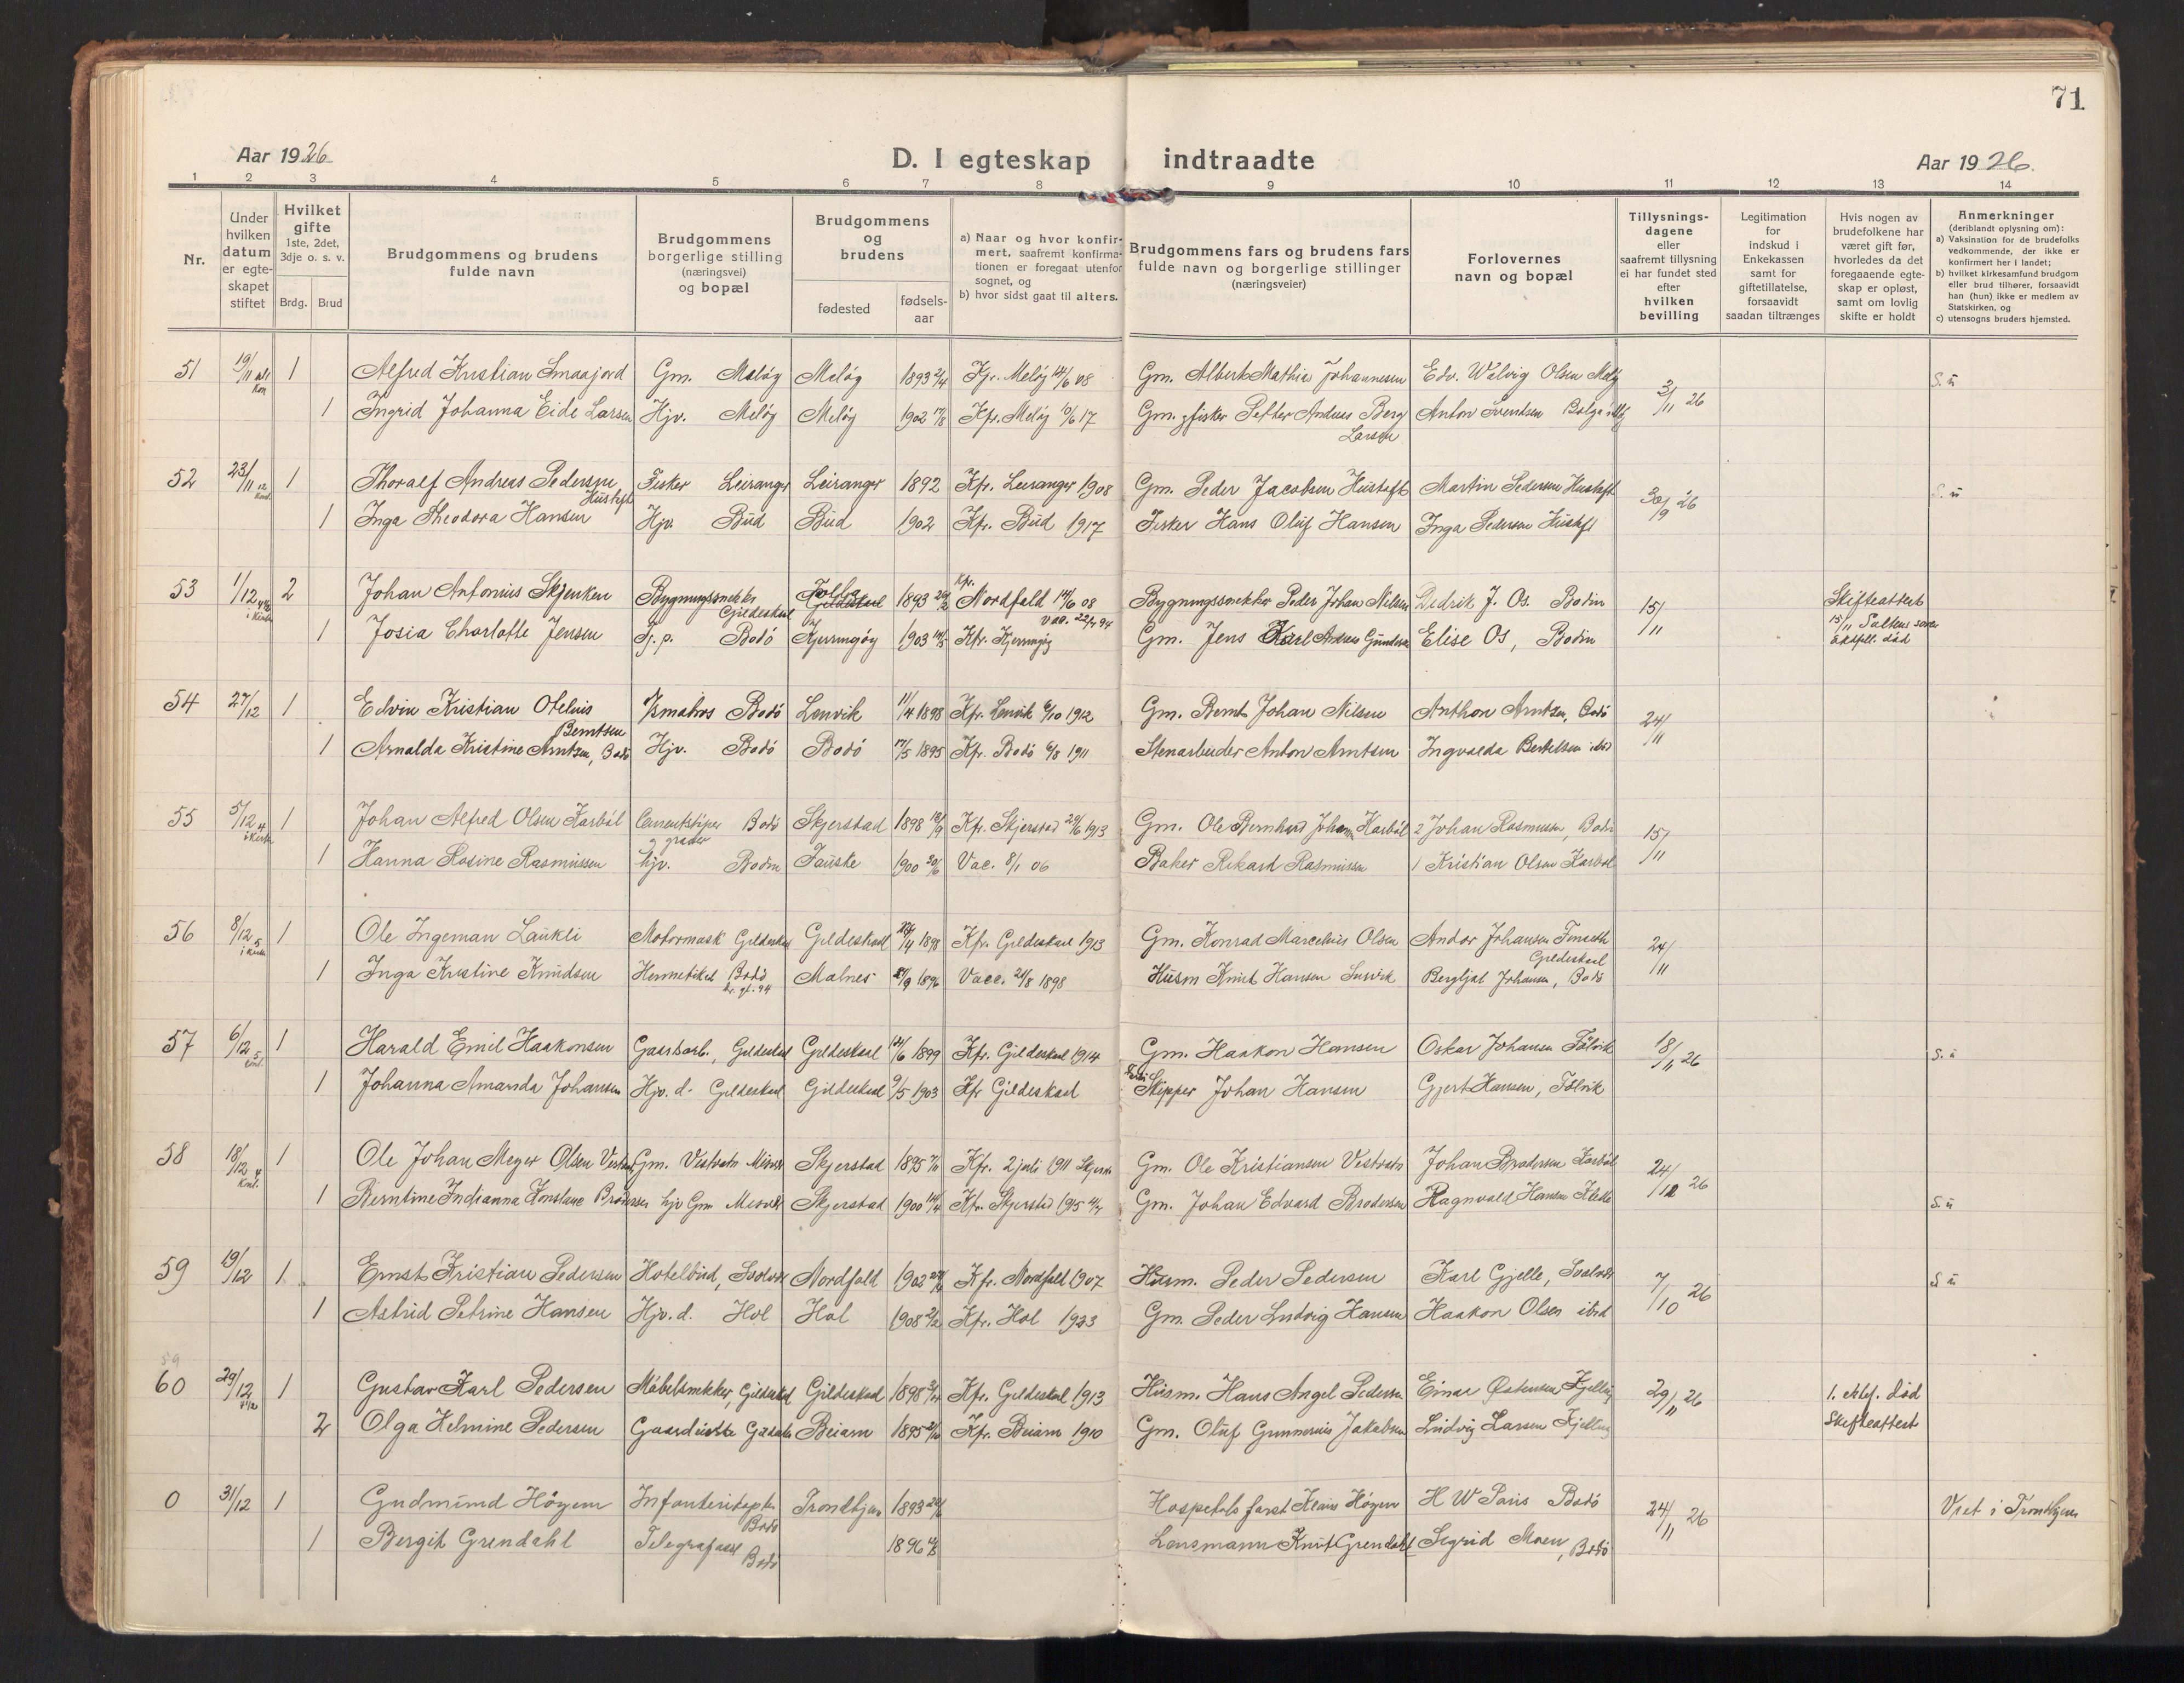 71
Aar 1926
D. I egteskap indtraadte
Aar 1926.
1 2 3 4 5 6 7 8 9 10 11 12 13 14
Nr.
Under hvilken datum er egteskapet stiftet
Hvilket gifte 1ste, 2det, 3dje o. s. v.
Brdg. Brud
Brudgommens og brudens fulde navn
Brudgommens borgerlige stilling (næringsvei) og bopæl
Brudgommens og brudens
fødested
fødselsaar
a) Naar og hvor konfirmert, saafremt konfirmationen er foregaat utenfor sognet, og
b) hvor sidst gaat til alters.
Brudgommens fars og brudens fars fulde navn og borgerlige stillinger (næringsveier)
Forlovernes navn og bopæl
Tillysningsdagene eller saafremt tillysning ei har fundet sted efter hvilken bevilling
Legitimation for indskud i Enkekassen samt for giftetillatelse, forsaavidt saadan tiltrænges
Hvis nogen av brudefolkene har været gift før, hvorledes da det foregaaende egteskap er opløst, samt om lovlig skifte er holdt
Anmerkninger (deriblandt oplysning om):
a) Vaksination for de brudefolks vedkommende, der ikke er konfirmert her i landet;
b) hvilket kirkesamfund brudgom eller brud tilhører, forsaavidt han (hun) ikke er medlem av Statskirken, og
c) utensogns bruders hjemsted.
51 19/11 1 Alfred Kristian Smaajord Gm. Meløy Meløy 1893 Kfr. Meløy 14/6 08 Gm. Albert Mathias Johannesen Edv. Walvig Olsen Meløy 3/11 26 S. u
1 Ingrid Johanna Eide Larsen Hjv. Meløy Meløy 1902 17/8 Kfr. Meløy 10/6 17 Gm. & fisker Petter Andreas Berg Larsen Anton Svendsen Bolga
52 23/11 1 Thoralf Andreas Pedersen Hustoft Fisker Leiranger Leiranger 1892 Kfr. Leiranger 1908 Gm. Peder Jacobsen Hustoft Martin Pedersen Hustoft 30/9 26 S. u
1 Inga Theodora Hansen Hjv. Bud Bud 1902 Kfr. Bud 1917 Fisker Hans Oluf Hansen Inga Pedersen Hustoft
53 1/12 2 Johan Antonius Skjenken Bygningssnekker Gildeskaal Folda 1893 Kfr. Nordfold 14/6 08 Bygningssnekker Peder Johan Nilsen Dedrik J. Os. Bodin 15/11 Skifteattest
1 Josia Charlotte Jensen Bodö Kjerringøy 1903 Kfr. Kjerringøy Gm. Jens Karl Andreas Gundersen Elise Os, Bodin 15/11 Saltens død
54 27/12 1 Edvin Kristian Oteluis Berntsen Bodö Lenvik 11/4 1898 Kfr. Lenvik 6/10 1912 Gm. Bernt Johan Nilsen Anthon Arntzen, Bodö 24/11
1 Arnalda Kristine Arntzen, Bodö Hjv. Bodö Bodö 17/5 1895 Kfr. Bodö 6/8 1911 Stenarbeider Anton Arntsen Ingvalda Bertelsen ibid
55 5/12 1 Johan Alfred Olsen Karbøl Cementstøper Bodö Skjerstad 1898 Kfr. Skjerstad 29/6 1913 Gm. Ole Bernhard Johansen Karbøl 2 Johan Rasmussen, Bodin 15/11
1 Hanna Rosine Rasmussen hjv. Bodin Fauske 1900 Vac. 8/1 06 Baker Rikard Rasmussen 1 Kristian Olsen Karbøl
56 8/12 1 Ole Ingeman Laukli Motormask Gildeskaal Gildeskaal 1898 Kfr. Gildeskaal 1913 Gm. Konrad Marcelius Olsen Andor Johansen Gildeskaal 24/11
1 Inga Kristine Knudsen Hermetikk Bodö Malnes 1896 Vacc. 21/8 1898 Husm Knut Hansen Bergljot Johansen, Bodö
57 6/12 1 Harald Emil Haakonsen Gaardarb., Gildeskaal Gildeskaal 14/6 1899 Kfr. Gildeskaal 1914 Gm. Haakon Hansen Oskar Johansen 18/11 26 S. u
1 Johanna Amanda Johansen Hjv. d. Gildeskaal Gildeskaal 9/5 1903 Kfr Gildeskaal Skipper Johan Hansen Gjert Hansen
58 18/12 1 Ole Johan Meyer Olsen Gm. Skjerstad 1895 Kfr. 2 juli 1911 Gm. Ole Kristiansen Johan Brodersen Karbøl 24/12 26
1 Berntine Indianna Konstanse Brodersen hjv Gm Misvær Skjerstad 1900 14/4 Kfr. Skjerstad 1915 Gm. Johan Edvard Brodersen Ragnvald Hansen S. u
59 19/12 1 Ernst Kristian Pedersen Hotelbud, Svolvær Nordfold 1902 Kfr. Nordfold 1907 Husm. Peder Pedersen Karl Gjelle, Svolvær 7/10 26 S u
1 Astrid Petrine Hansen Hjv. d. Hol Hol 1908 Kfr. Hol 1923 Gm. Peder Ludvig Hansen Haakon Olsen ibid
59
60 29/12 1 Gustav Karl Pedersen Møbelsnekker, Gildeskaal Gildeskaal 1898 Kfr. Gildeskaal 1913 Husm. Hans Angel Pedersen Einar Østensen 29/11 26 1. død
2 Olga Helmine Pedersen Beiarn 1895 Kfr. Beiarn 1910 Gm. Oluf Gunnerius Jakobsen Ludvig Larsen Skifteattest
0 31/12 1 Gudmund Höyem Infanterikapt. Bodö Trondhjem 1893 Hospitalsforst. Klaus Höyem H W Paris Bodö 24/11 26 Viet i Trondhjem
1 Bergit Grendahl Telegrafass Bodö 1896 Lensmann Knut Grendahl Sigrid Moen, Bodö